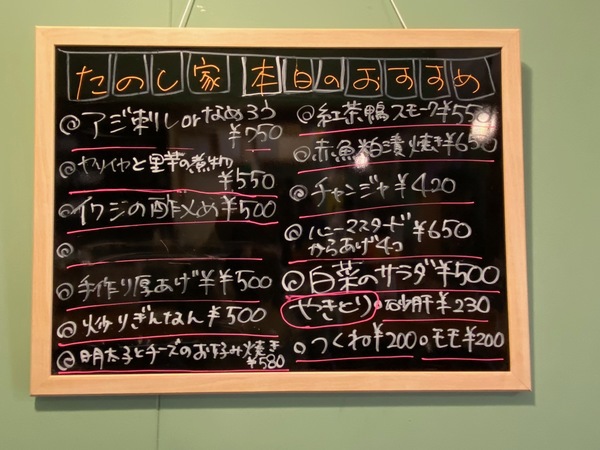 たのし家 本日のおすすめ
◎アジ刺しorなめろう
¥750
ヤリイカと里芋の煮物
¥550
◎イワシの酢〆め¥500
◎
◎手作り厚あげ¥¥500
◎炒りぎんなん¥500
◎明太子とチーズのお好み焼き
¥580
◎紅茶鴨スモーク¥550
◎赤魚粕漬焼き¥650
◎チャンジャ¥420
◎ハニーマスタード
からあげ4コ ¥650
◎白菜のサラダ¥500
やきとり 砂肝¥230
つくね¥200 モモ¥200